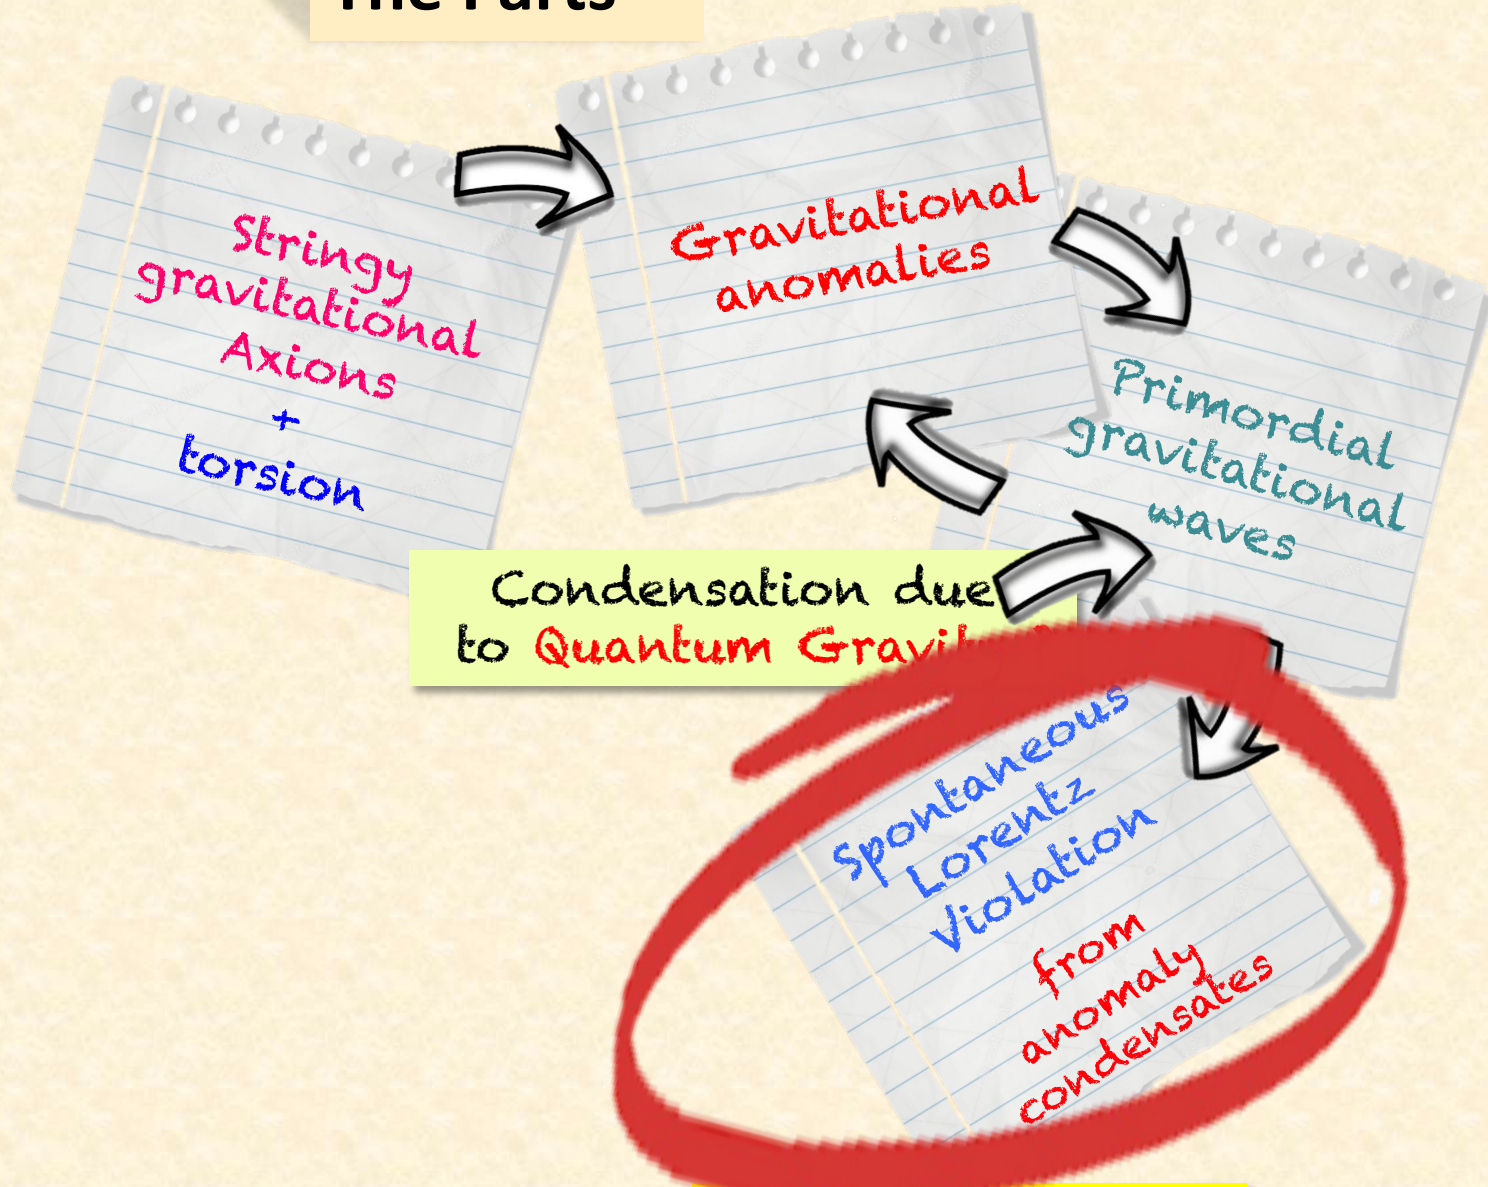 The Parts
Stringy
gravitational
Axions
+
torsion
Gravitational
anomalies
Primordial
gravitational
waves
Condensation due
to Quantum
Spontaneous
Lorentz
Violation
from
anomaly
condensates